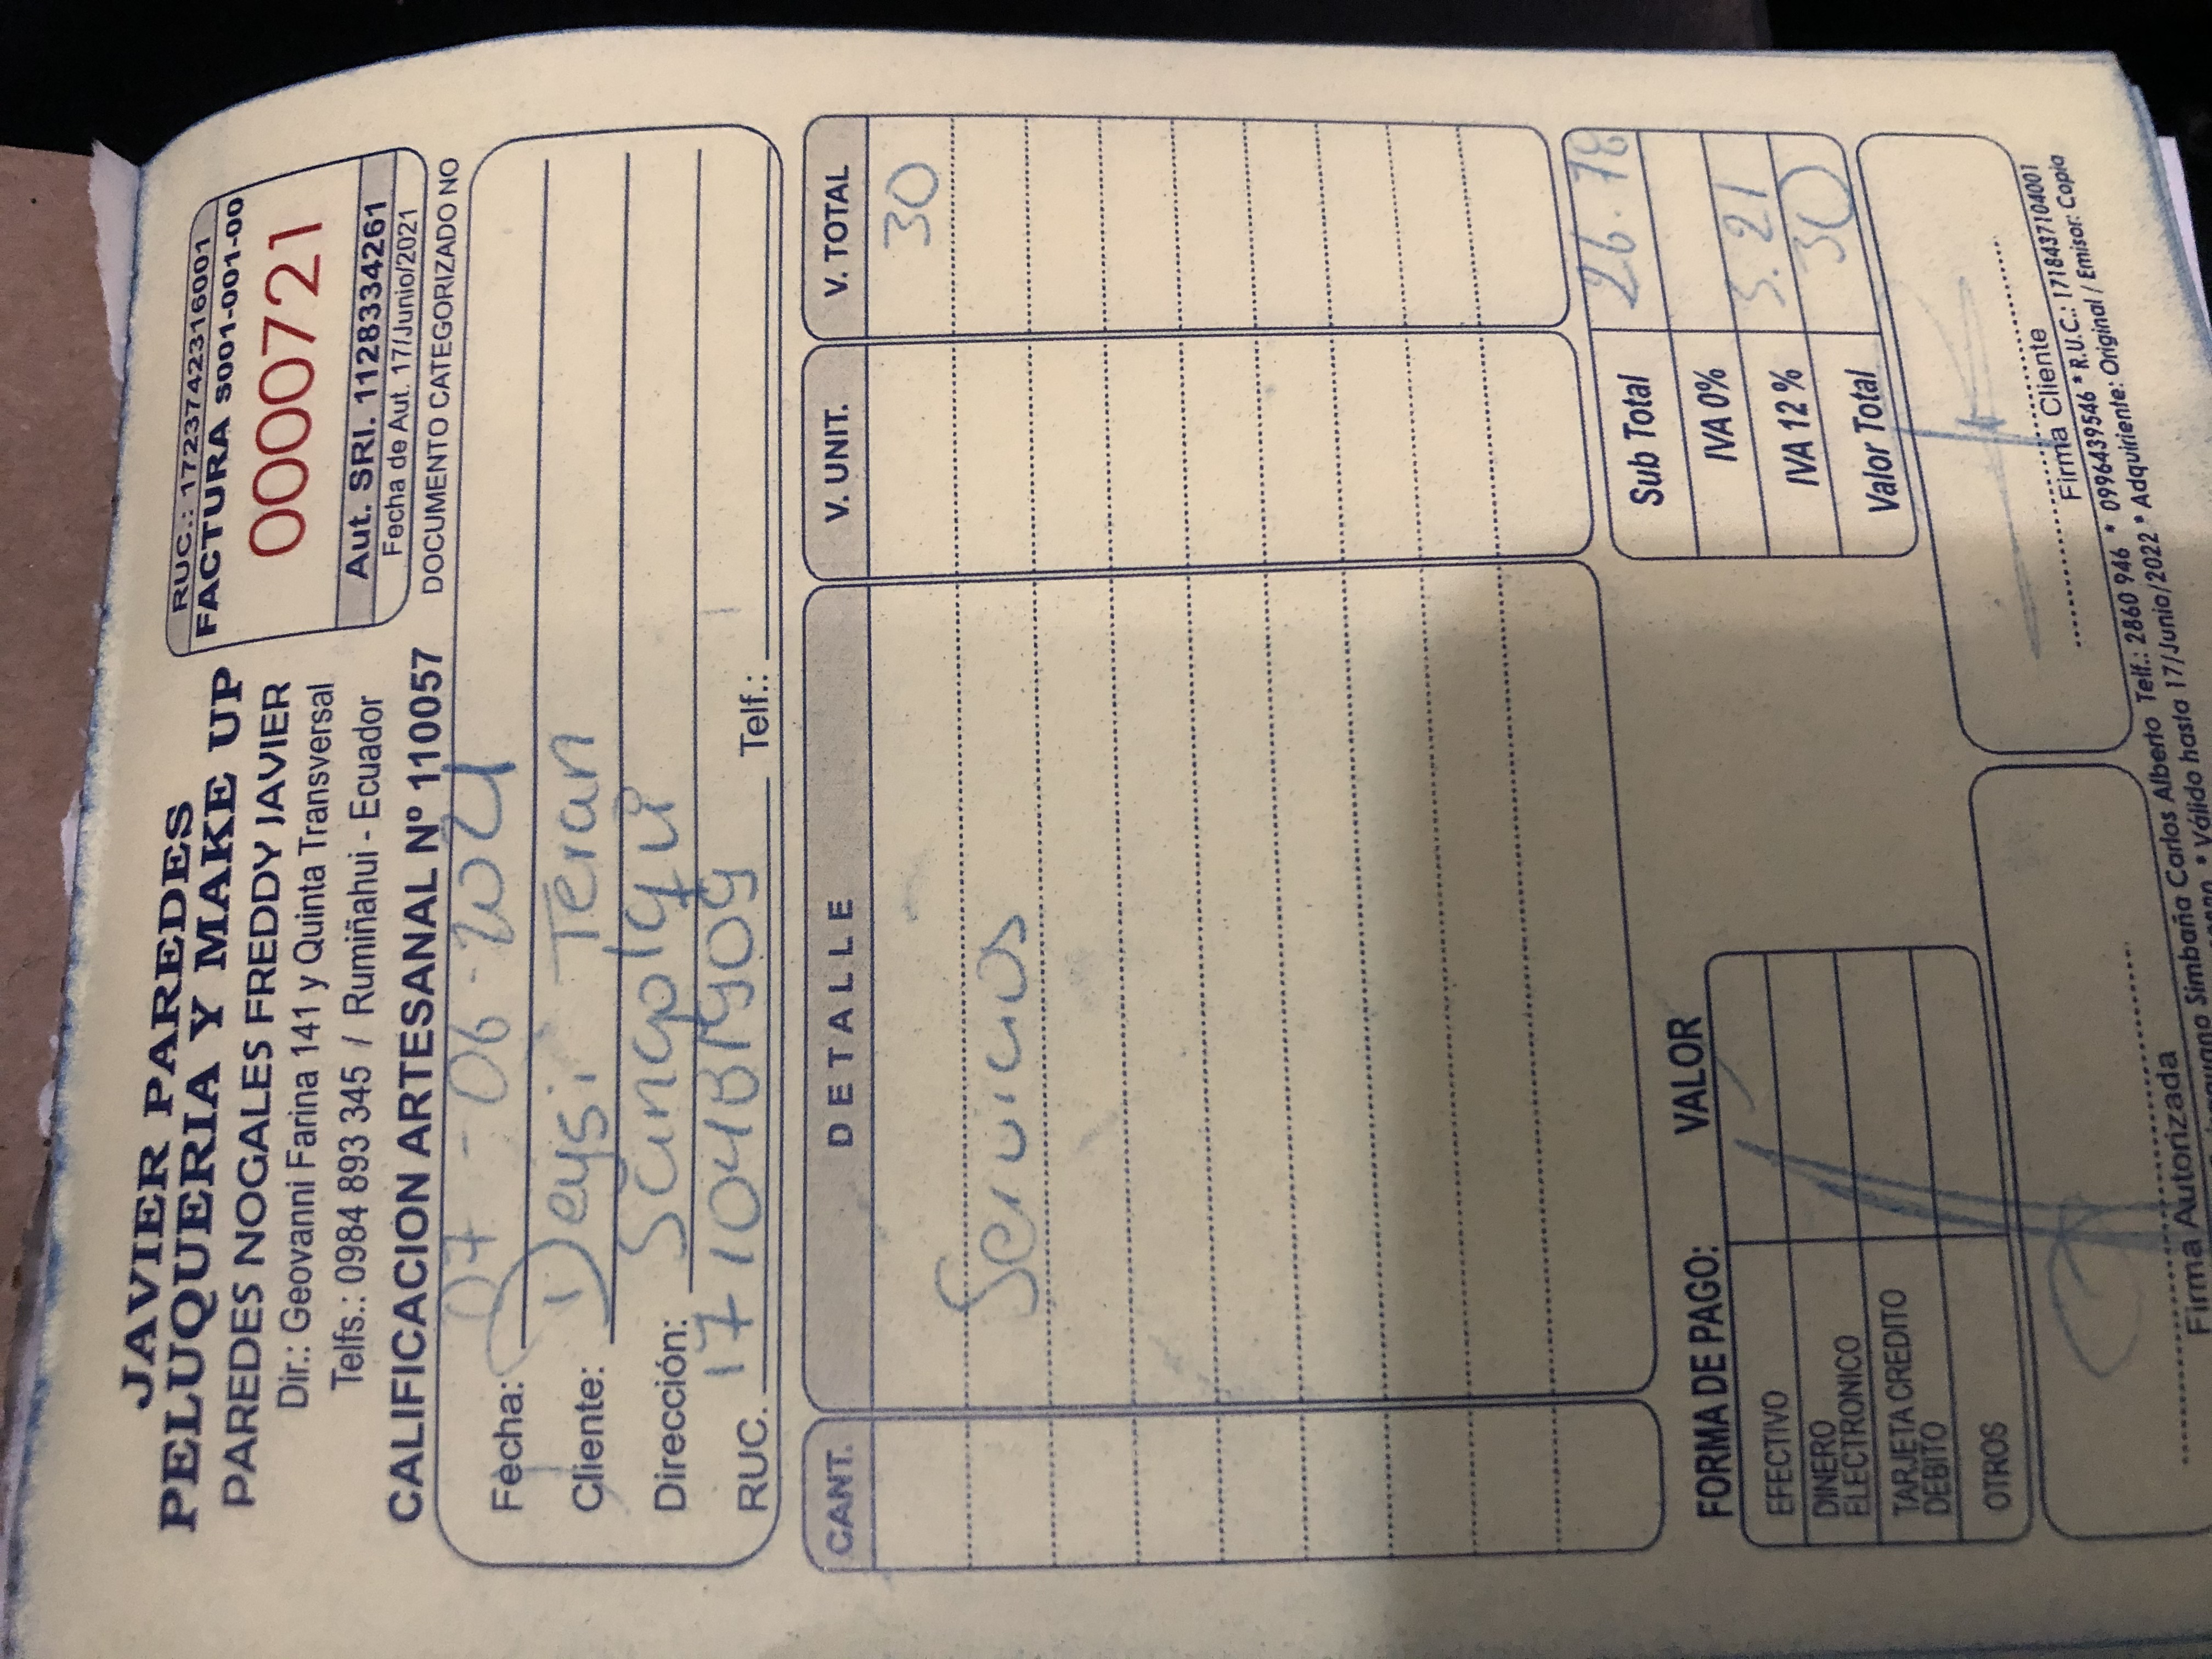 JAVIER PAREDES
PELUQUERIA Y MAKE UP
PAREDES NOGALES FREDDY JAVIER
Dir.: Geovanni Farina 141 y Quinta Transversal
Telfs.: 0984 893 345 / Rumiñahui - Ecuador
CALIFICACION ARTESANAL Nº 110057
RUC.: 1723742316001
FACTURA S001-001-00
0000721
Aut. SRI. 1128334261
Fecha de Aut. 17/Junio/2021
DOCUMENTO CATEGORIZADO NO
Fecha: 07 - 06 - 2021
Cliente: Deysi Teran
Dirección: Sangolqui
RUC. 1710481909 Telf.:
CANT. DETALLE V. UNIT. V. TOTAL
30
Servicios
Sub Total 26.78
IVA 0%
IVA 12 % 3.21
Valor Total 30
FORMA DE PAGO: VALOR
EFECTIVO
DINERO
ELECTRONICO
TARJETA CREDITO
DEBITO
OTROS
Firma Autorizada
Firma Cliente
Simbaña Carlos Alberto Telf.: 2860 946 * 0996439546 * R.U.C.: 1718437104001
* Válido hasta 17/Junio/2022 * Adquiriente: Original / Emisor: Copia